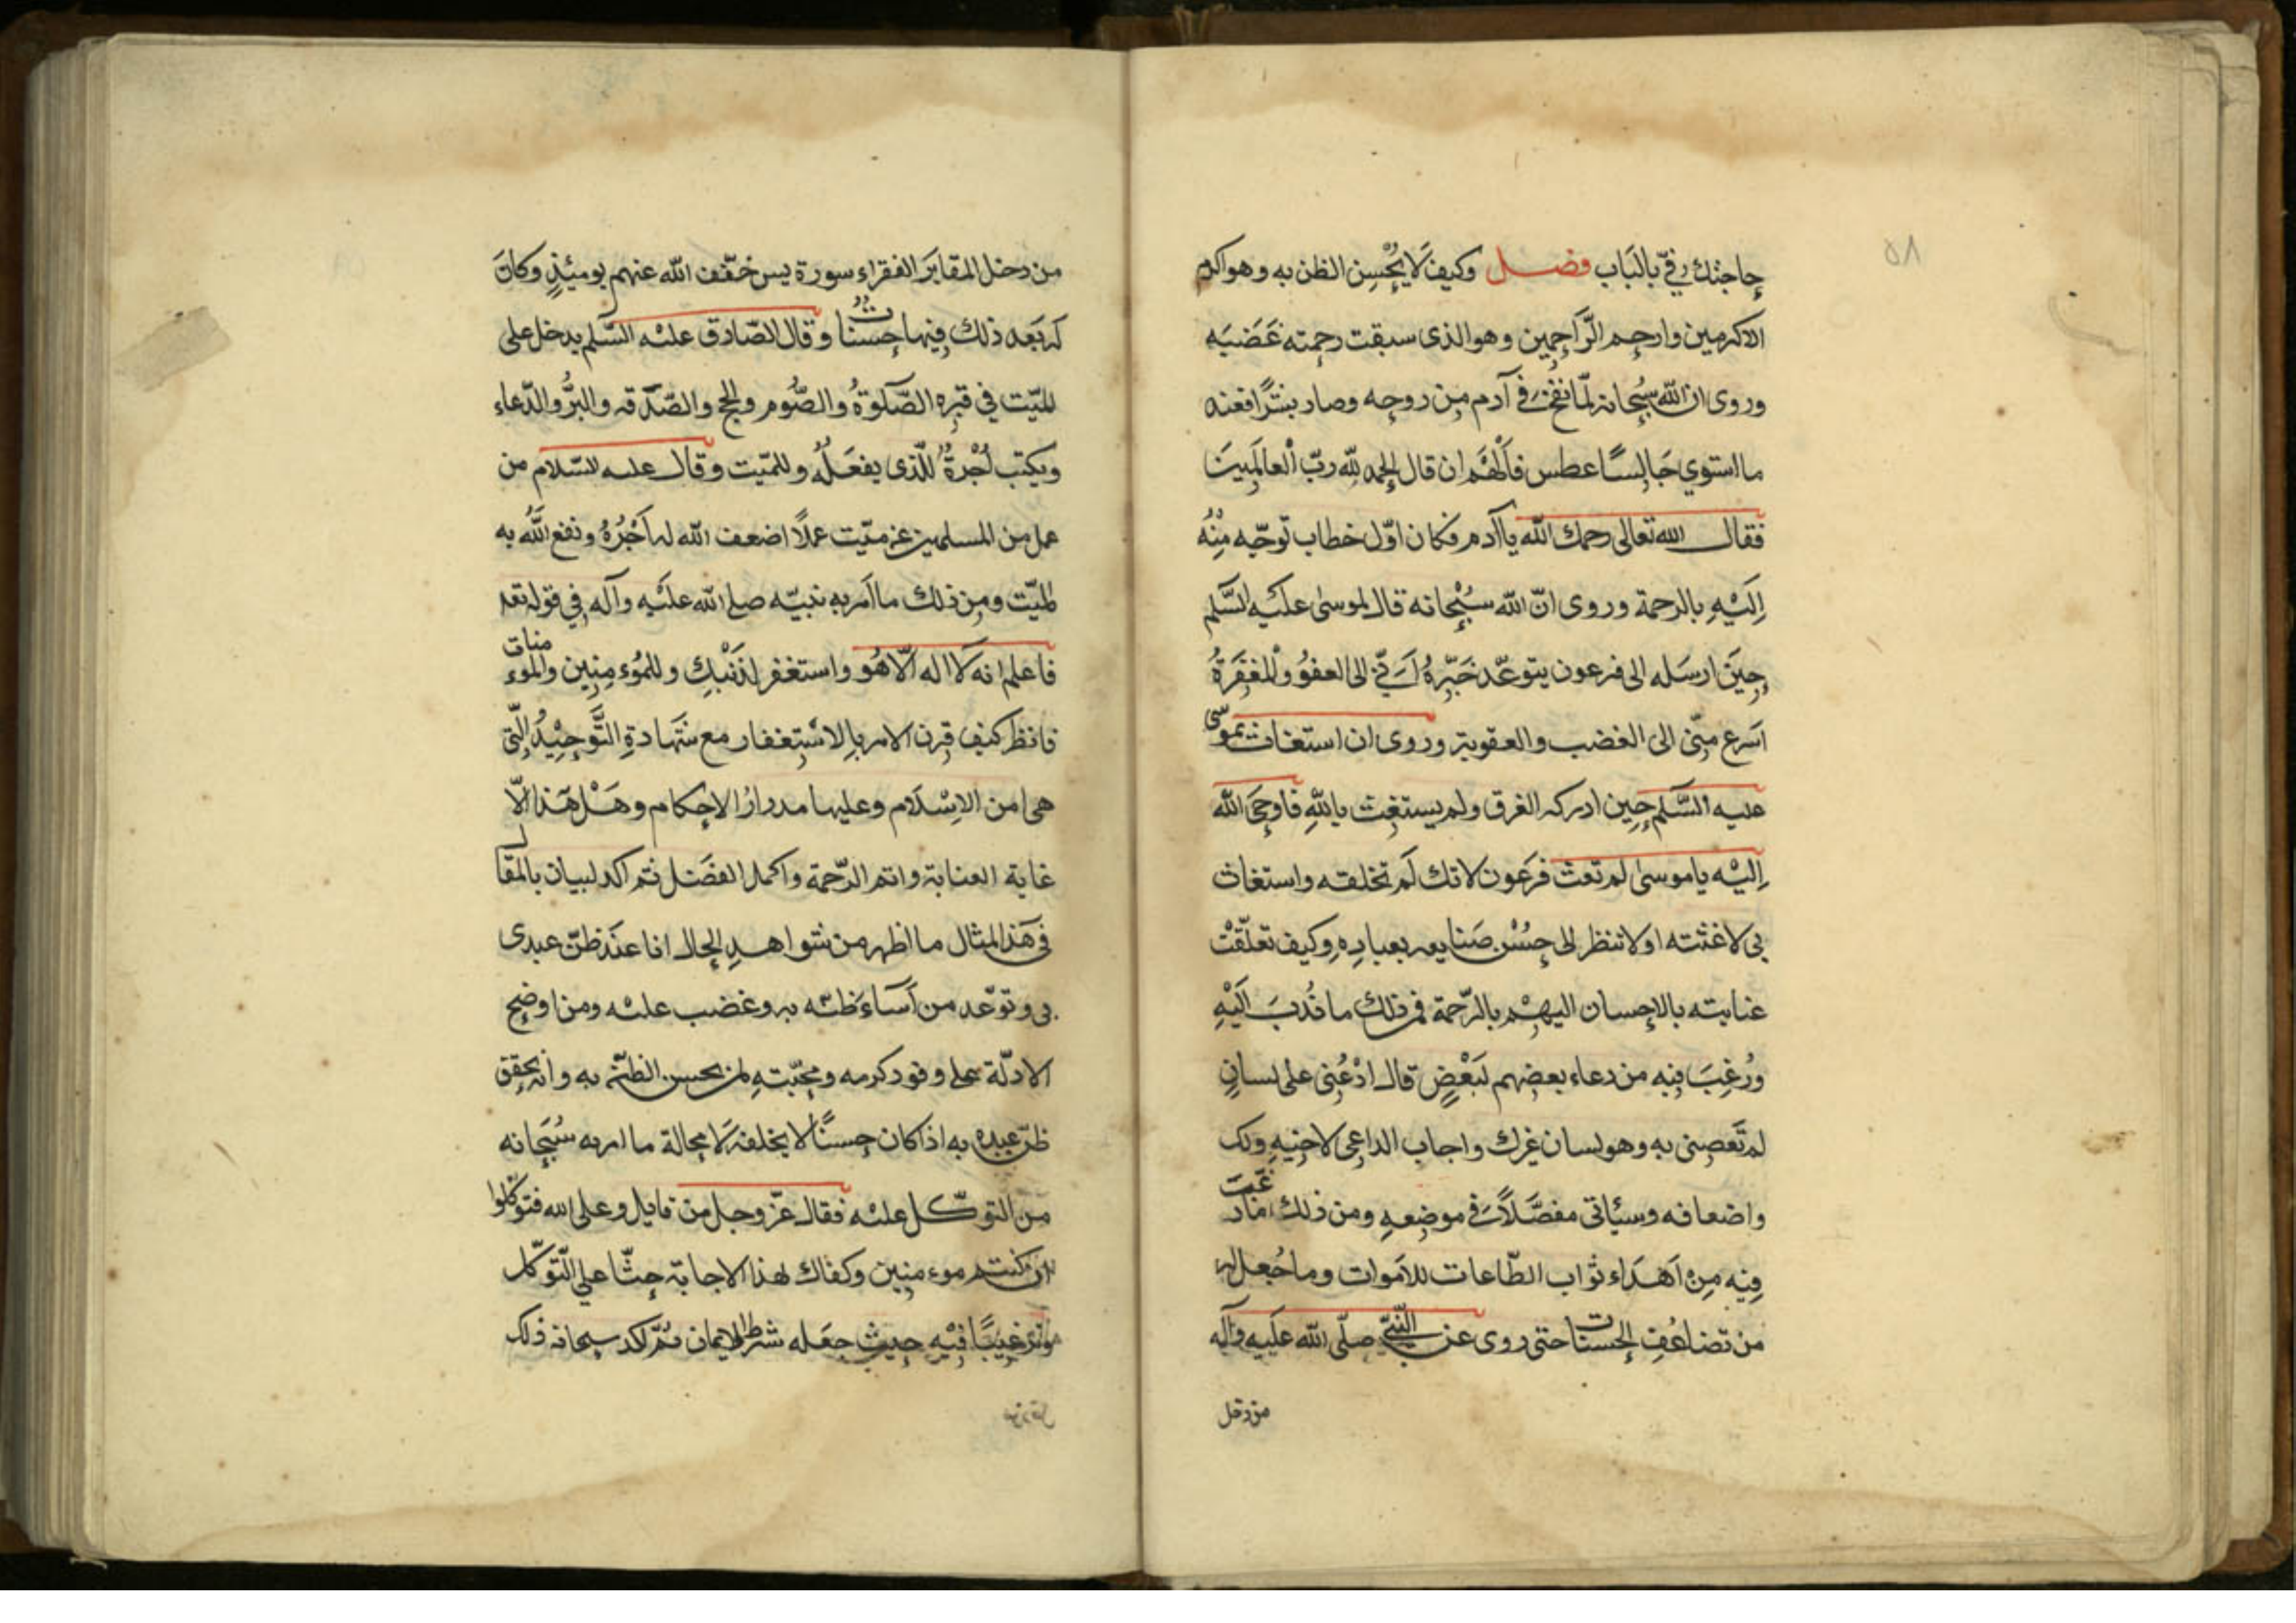 ٥٨
حاجتك في بالباب فصل وكيف لا يُحْسِن الظن به وهو اكرم
الاكرمين وارحم الرّاحمين وهو الذى سبقت رحمته غَضَبَه
وروى ان الله سُبحانه لمّا نفخ فى آدم من روحه وصار بشرًا فعنه
ما استوي جَالِسًا عطس فاُلْهَم ان قال الحمد لله ربّ العالَمِينَ
فقال الله تعالى رحمك الله يا آدم فكان اوّل خطاب توجّه مِنْهُ
اِلَيْهِ بالرحمة وروى انّ الله سُبْحانه قال لموسى علَيه السَّلم
حِينَ ارسَله الى فرعون يتوعّد خَبّرهُ اَنِّي الى العفوُ والمغفِرَةُ
اسَرع مِنّى الى الغضب والعقوبة وروى ان استغاث بموسى
عليه السَّلم حِين ادركه الغرق ولم يستغِث بِاللهِ فاوحىَ الله
اِليْه يا موسى لم تغث فرعَون لانك لَم تخلقه واستغاث
بي لاغثته اولا تنظر الى حُسْن صَنايعه بعبادِهِ وكيف تعلّقَتْ
عنايته بالاحسان اليهِمْ بالرّحمة فمن ذلك ما نُدبَ اِلَيْهِ
ورُغِبَ فيه من دعاء بعضهم لبَعْضٍ قال ادْعُنِى على لسانٍ
لم تَعصِنى به وهو لسان غيرك واجاب الداعى لاخيهِ ولك
واضعافه وسيَاتى مفصَّلاً فى موضِعهِ ومن ذلك ما رغّبَ
فِيه مِن اَهدَاء ثواب الطّاعات للاَموات وما جُعل له
من تضاعُفِ الحسنات حتى روى عن النّبىّ صلّى الله علَيه وآله
من دخل
من دخل المقابَر الفقراء سورة يس خفّف الله عنهم يومئذٍ وكانَ
له بعَدد ذلك فيها حسنات وقال الصّادق عليْه السَّلم يدخل على
الميّت في قبرِه الصَّلوةُ والصُّوم والحج والصّدقه والبرُّ والدّعاء
ويكتب اُجْرةُ للّذى يفعَلُه وللميّت وقال عليه السّلام من
عمل من المسلمين عن ميّت عملًا اضعف الله له اَجْرُهُ ونفع اللّهُ به
الميّت ومِن ذلك ما اَمر به نبيّه صلى الله علَيْهِ وآله فِي قوله تعد
فاعلم انه لَا اله الّا هُو واستغفر لذَنْبِكِ وللمُؤمِنِين والمؤمنات
فانظر كيف قرن الامر بالاسْتِغفار مع شَهادةِ التَّوحِيْدُ الّتى
هى امن الاِسْلام وعليها مدرارُ الاحكام وهَلْ هَذا الّا
غاية العناية واتم الرّحمة واكمل الفَضل ثم اكد لبيان بالمقال
فى هَذ المثال ما اظهر من شواهدِ الحال انا عنَد ظنّ عبدى
بى وتوّعد من اَسَاءَ ظنّه به وغضب عليْه ومن اوضِح
الادلّة على وفود كرمه ومحبّتهِ لمن يحسن الظنّ به وانه يحقق
ظنّ عبده به اذا كان حِسنًا لا يخلفه لَا محالة ما امر به سُبحَانه
من التوّكل عليْه فقال عزّ وجل من قايل وعلى الله فتوكّلوا
ان كنتم موءمنِين وكفاك لهذا الاجابة حثّا علي التّوكّل
وترغِيبًا فيْهِ حيث جعَله شرط الايمان ثمّ اكد سبحانه ذلك